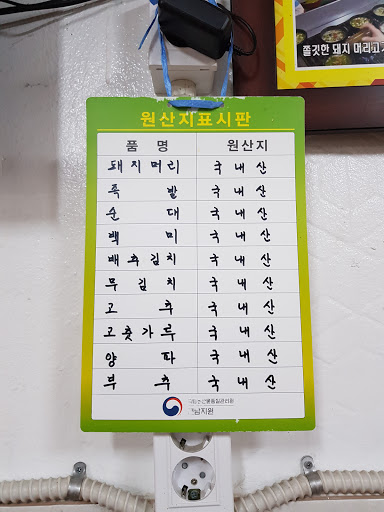 쫄깃한 돼지 머리고
원산지표시판
품 명 원산지
돼지머리 국내산
족 발 국내산
순 대 국내산
백 미 국내산
배추김치 국내산
무김치 국내산
고 추 국내산
고춧가루 국내산
양 파 국내산
부 추 국내산
국립농산물품질관리원
전남지원